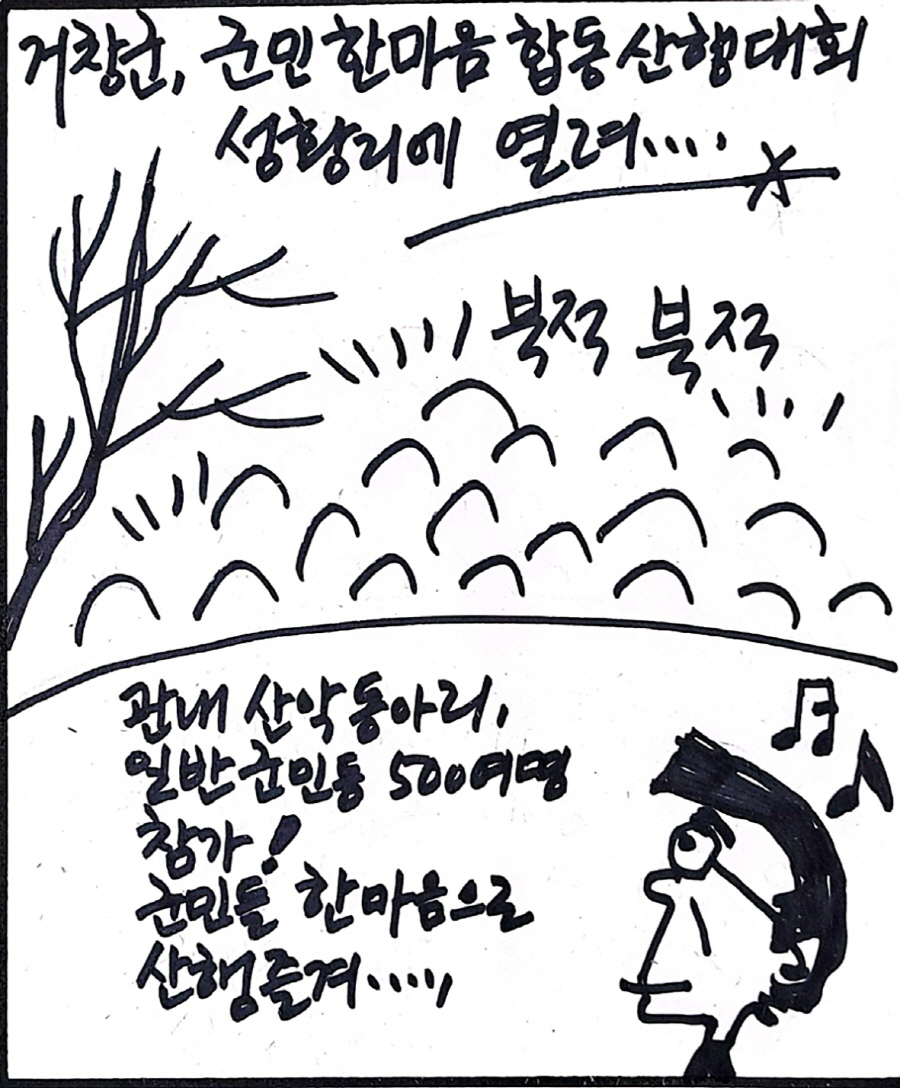 거창군, 군민 한마음 합동 산행대회
성황리에 열려....
북적 북적
관내 산악동아리,
일반군민등 500여명
참가!
군민들 한마음으로
산행즐겨....,